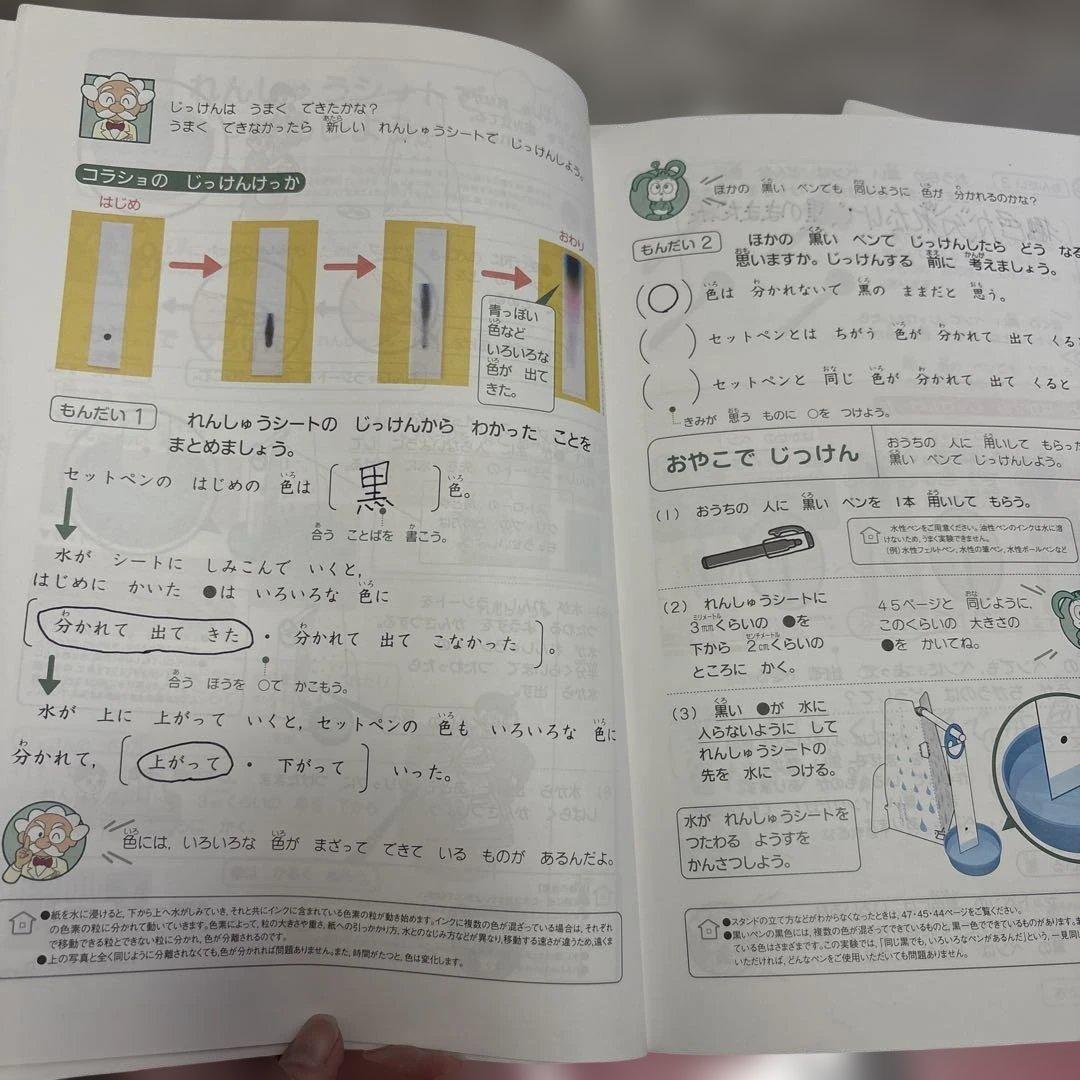 じっけんは うまく できたかな?
うまく できなかったら 新しい れんしゅうシートで じっけんしよう。
コラショの じっけんけっか
はじめ
おわり
青っぽい
色など
いろいろな
色が 出て
きた。
もんだい 1 れんしゅうシートの じっけんから わかった ことを
まとめましょう。
セットペンの はじめの 色は 〔黒〕 色。
合う ことばを 書こう。
水が シートに しみこんで いくと,
はじめに かいた ●は いろいろな 色に
〔分かれて 出て きた ・ 分かれて 出て こなかった〕。
合う ほうを ○で かこもう。
水が 上に 上がって いくと, セットペンの 色も いろいろな 色に
分かれて, 〔上がって ・ 下がって〕 いった。
色には, いろいろな 色が まざって できて いる ものが あるんだよ。
●紙を水に浸けると, 下から上へ水がしみていき, それと共にインクに含まれている色素の粒が動き始めます。インクに複数の色が混ざっている場合は, それぞれ
の色素の粒に分かれて動いていきます。色素によって, 粒の大きさや重さ, 紙への引っかかり方, 水とのなじみ方などが異なり, 移動する速さが違うため, 遠くま
で移動できる粒とできない粒に分かれ, 色が分離されるのです。
●上の写真と全く同じように分離されなくても, 色が分かれれば問題ありません。また, 時間がたつと, 色は変化します。
ほかの 黒い ペンでも 同じように 色が 分かれるのかな?
もんだい 2 ほかの 黒い ペンで じっけんしたら どう なる
思いますか。じっけんする 前に 考えましょう。
(○) 色は 分かれないで 黒の ままだと 思う。
( ) セットペンとは ちがう 色が 分かれて 出て くると
( ) セットペンと 同じ 色が 分かれて 出て くると
きみが 思う ものに ○を つけよう。
おやこで じっけん
おうちの 人に 用いして もらった
黒い ペンで じっけんしよう。
(1) おうちの 人に 黒い ペンを 1本 用いして もらう。
水性ペンをご用意ください。油性ペンのインクは水に溶
けないため, うまく実験できません。
(例)水性フェルトペン, 水性の筆ペン, 水性ボールペンなど
(2) れんしゅうシートに
3mmくらいの ●を
下から 2cmくらいの
ところに かく。
45ページと 同じように,
このくらいの 大きさの
●を かいてね。
(3) 黒い ●が 水に
入らないように して
れんしゅうシートの
先を 水に つける。
水が れんしゅうシートを
つたわる ようすを
かんさつしよう。
●スタンドの立て方などがわからなくなったときは, 47・45・44ページをご覧ください。
●黒いペンの黒色には, 複数の色が混ざってできているものと, 黒一色でできているものがあります。
ている色はさまざまです。この実験では, 「同じ黒でも, いろいろなペンがあるんだ」という, 一見同
いただければ, どんなペンをご使用いただいても問題ありません。